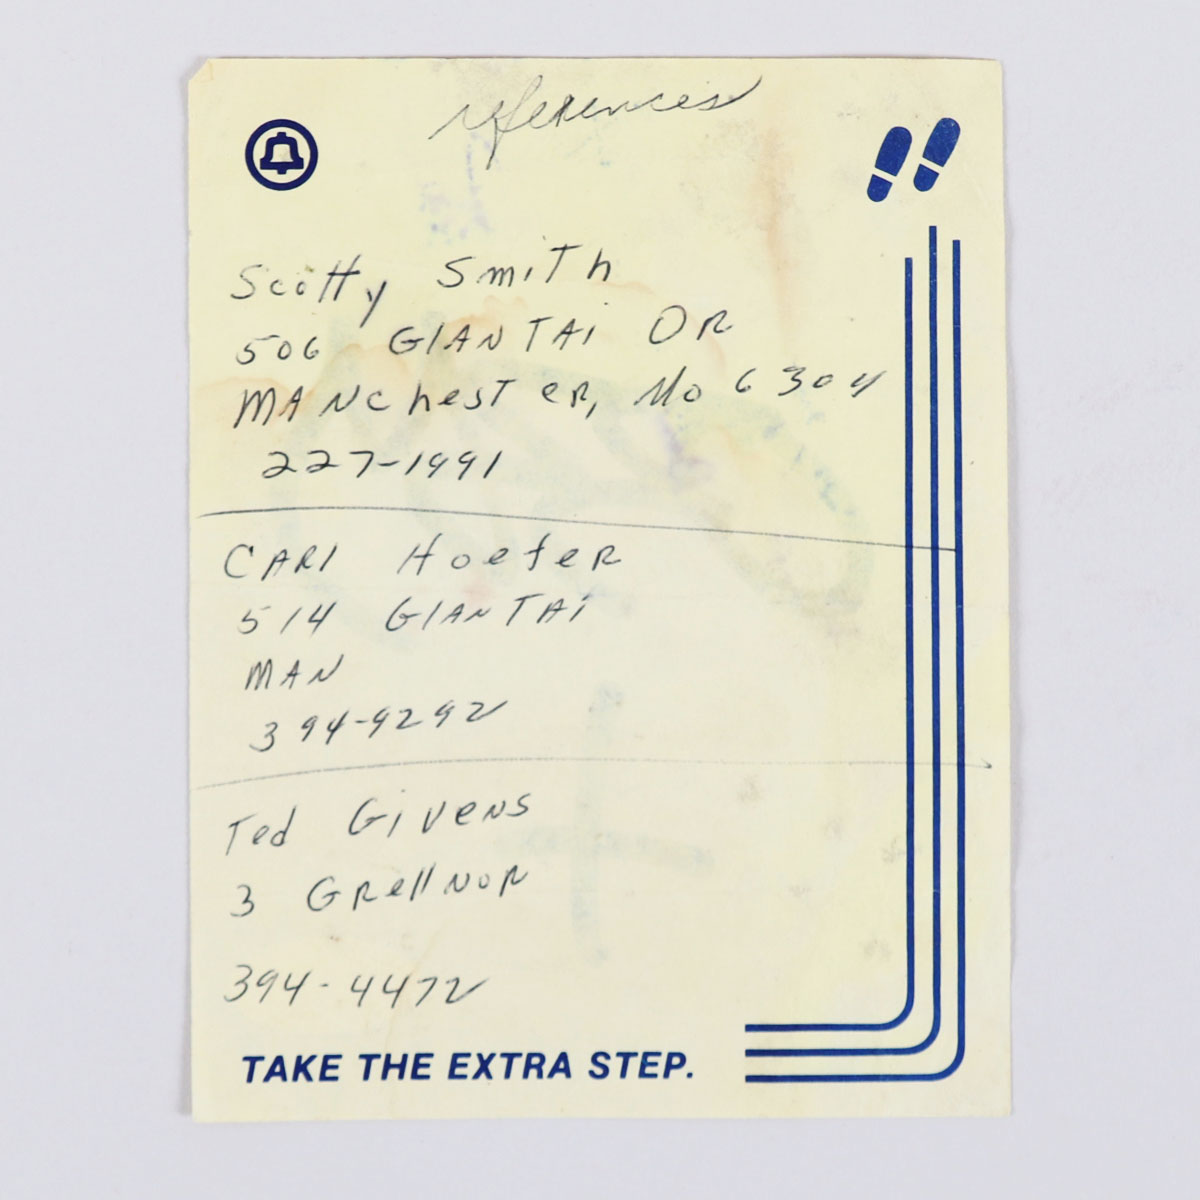 references
Scotty Smith
506 GIANTAi DR
MANchesTeR, Mo 6304
227-1991
CARl HoefeR
514 GIANTAi
MAN
394-9292
Ted GiVeNS
3 GRellNoR
394-4472
TAKE THE EXTRA STEP.